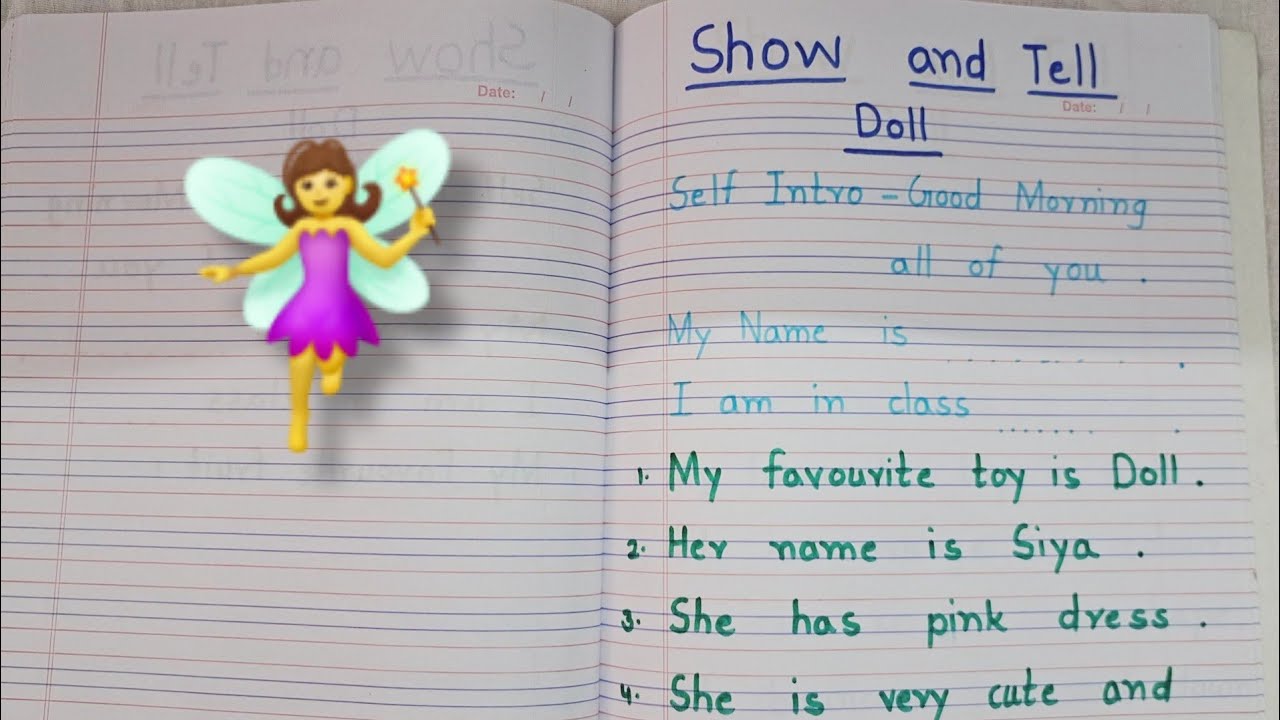 Show and Tell
Date: / /
Date: / /
Doll
Self Intro - Good Morning
all of you .
My Name is ......... .
I am in class ....... .
1. My favourite toy is Doll .
2. Her name is Siya .
3. She has pink dress .
4. She is very cute and